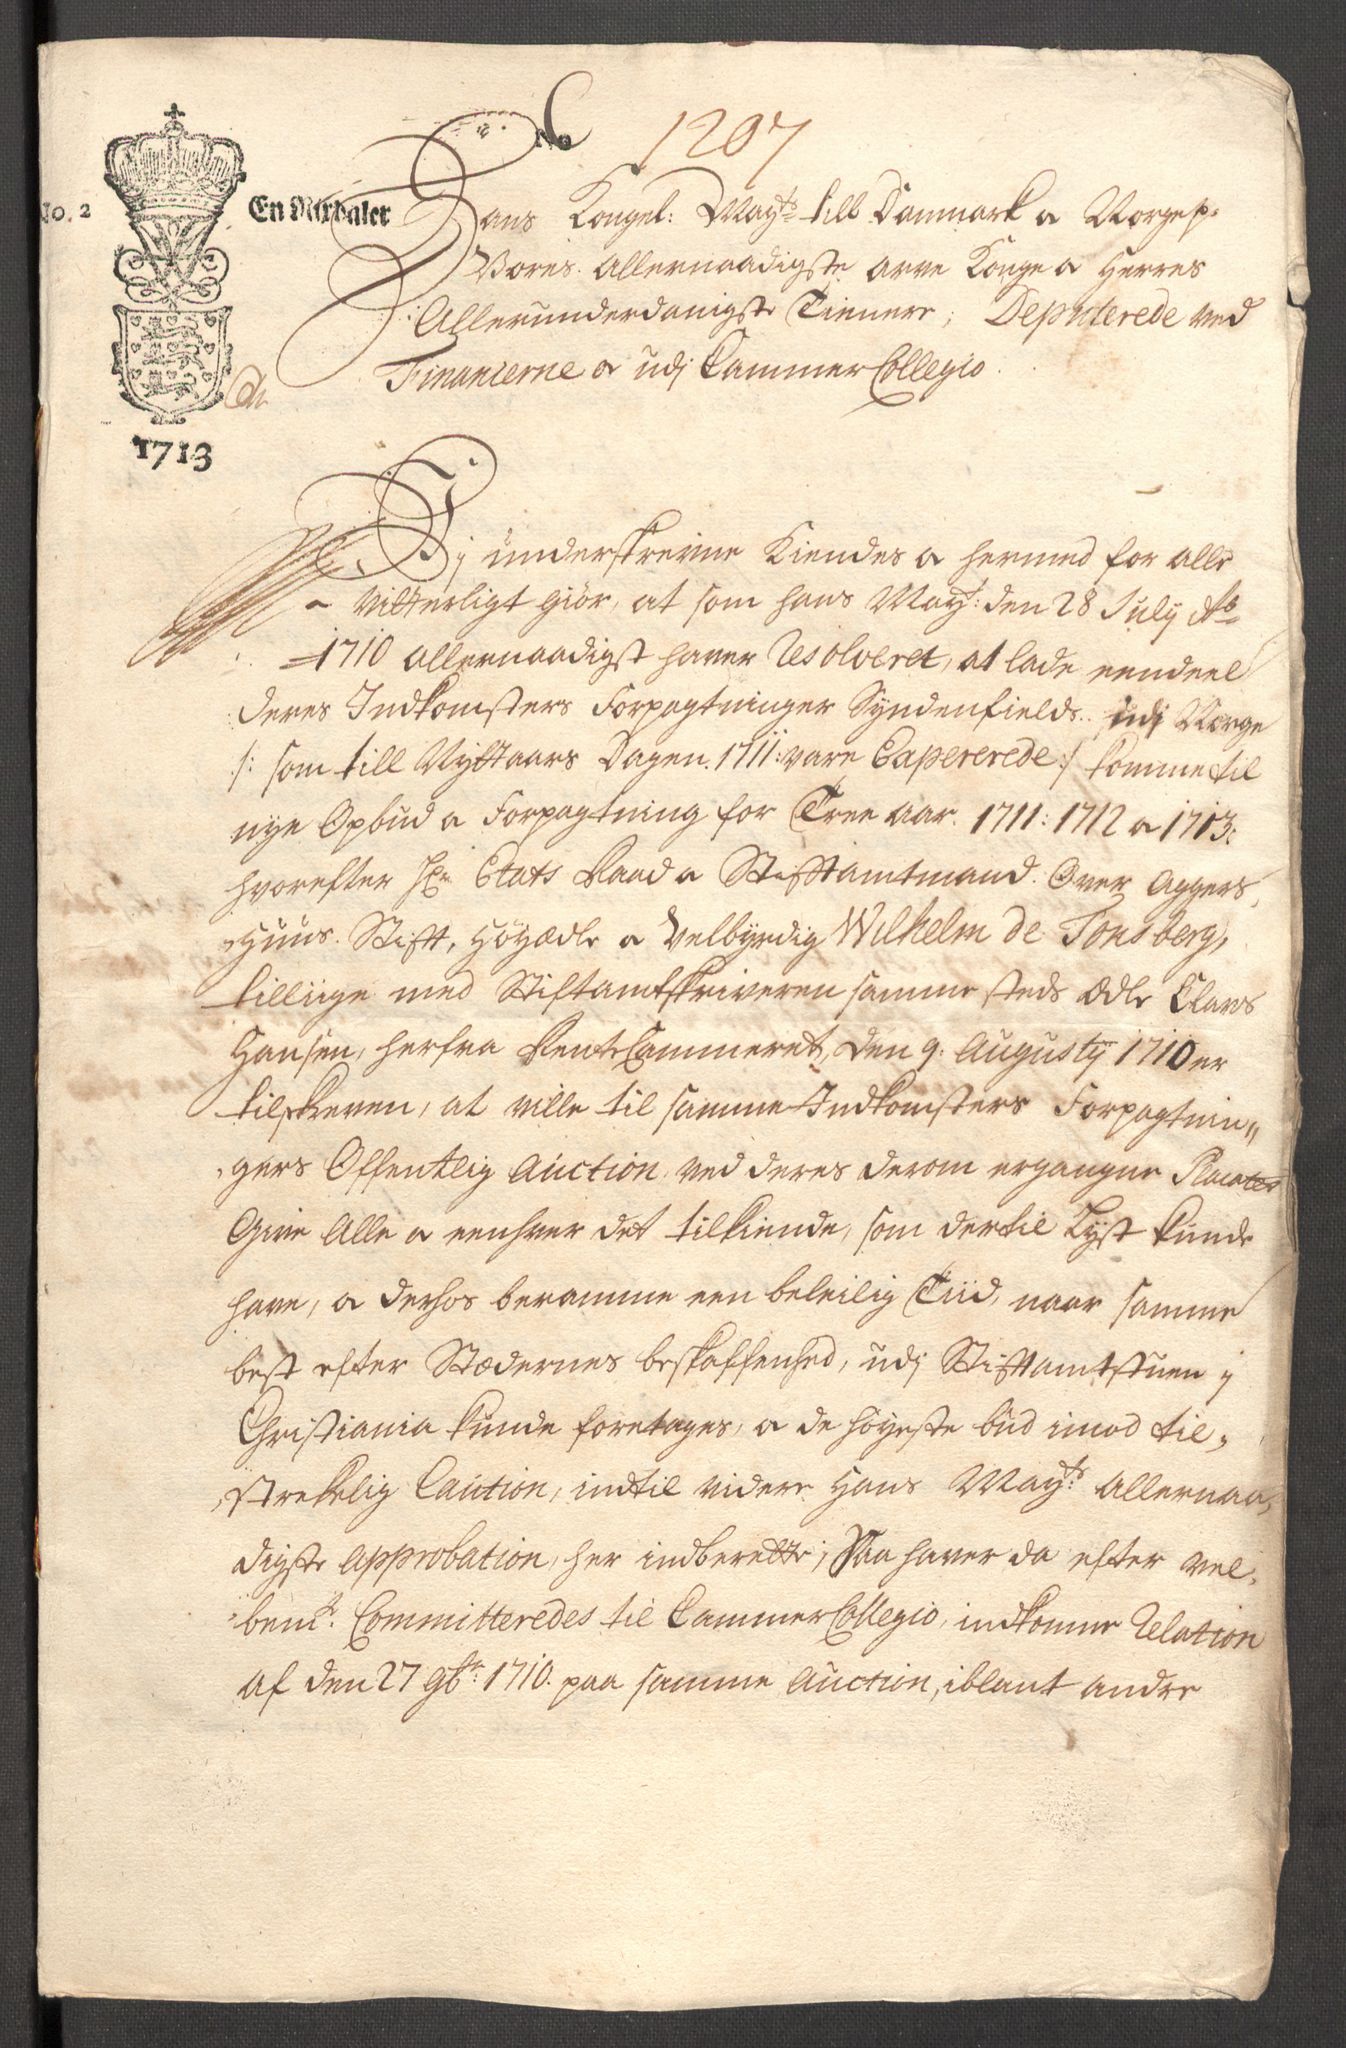 No 1207
No. 2
En Rixdaler
1713
Hans Kongel: Mayts till Danmark a Norges
Vores Allernaadigste Arve Konge a Herres
Allerunderdanigste Tienere, Deputerede ved
Financerne a udj CammerCollegio.
Vj underskrevne Kiendes a hermed for alle
vitterligt giör, at som hans Mayt: den 28 Julij Ao
1710 allernaadigst haver Resolveret, at lade eendeel
deres Indkomsters Forpagtninger Syndenfields udj Norge
/: som till Nyttaars Dagen 1711: vare Expererede :/ komme til
nye Opbud a Forpagtning for Tree Aar 1711: 1712 a 1713:
hvorefter Hr Etats Raad a Stiftamtmand Over Aggers-
Huus Stift, Höyædle a Velbyrdig Wilhelm de Tonsberg,
tilliige med Stiftamtskriveren sammesteds Ædle Claus
Hansen, herfra RenteCammeret, den 9. Augustij 1710 er
tilskreven, at ville til samme Indkomsters Forpagtnin-
gers Offentlig Auction ved deres derom ergangne Placater
Give Alle a eenhver det tilkiende, som dertil Lyst kunde
have, a derhos beramme een beleilig Tiid, naar samme
best efter Stædernes beskaffenhed, udj Stiftamtstuen j
Christiania kunde foretages, a de höyeste bud imod til-
strekelig Caution, indtil videre Hans Mayts: Allernaa-
digste Approbation, her indberette; Saa haver da efter vel-
bemt: Committeredes til CammerCollegio indkomne Relation
af den 27 9br: 1710. paa samme Auction, iblant andre